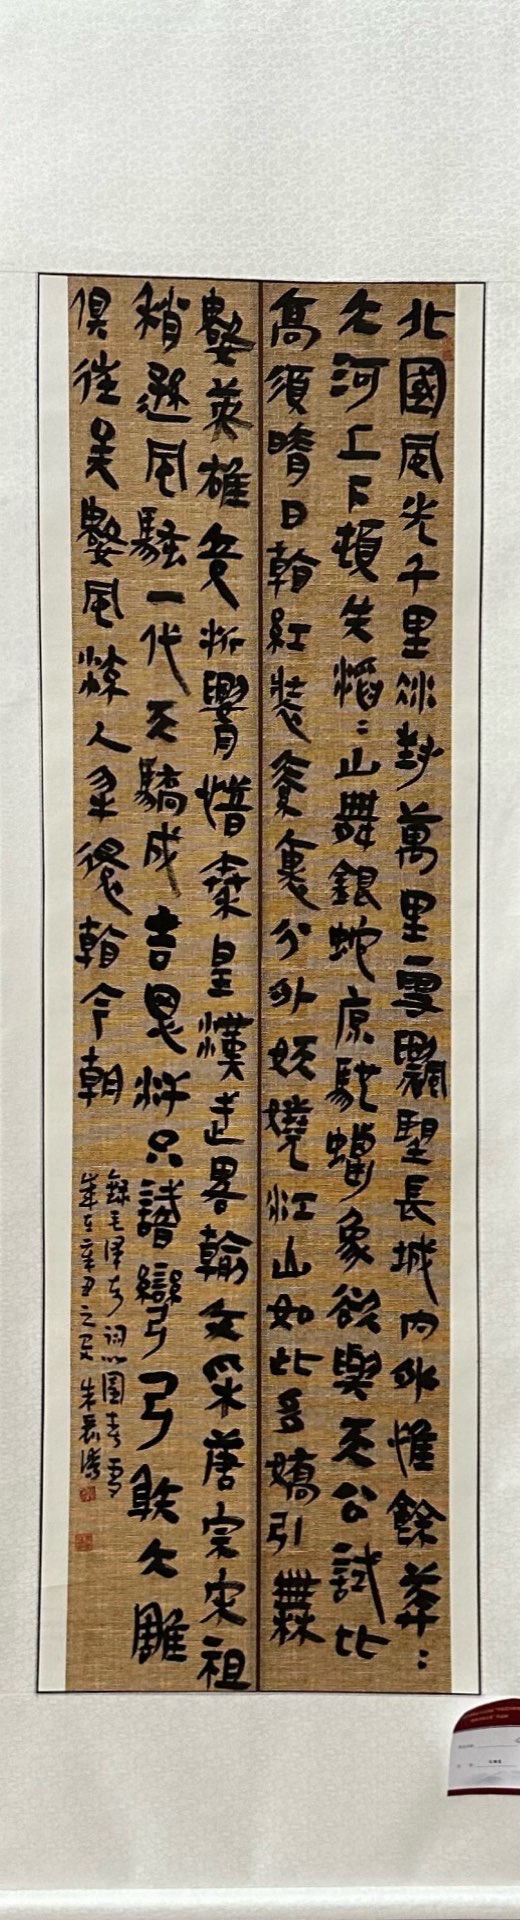 北國風光千里冰封萬里雪飄望長城內外惟餘莽:
大河上下頓失滔:山舞銀蛇原馳蠟象欲與天公試比
高須晴日看紅裝素裹分外妖嬈江山如此多嬌引無
數英雄競折腰惜秦皇漢武略輸文采唐宗宋祖
稍遜風騷一代天驕成吉思汗只識彎弓射大雕
俱往矣數風流人物還看今朝
錄毛澤東詞沁園春雪
歲在辛丑之夏 朱